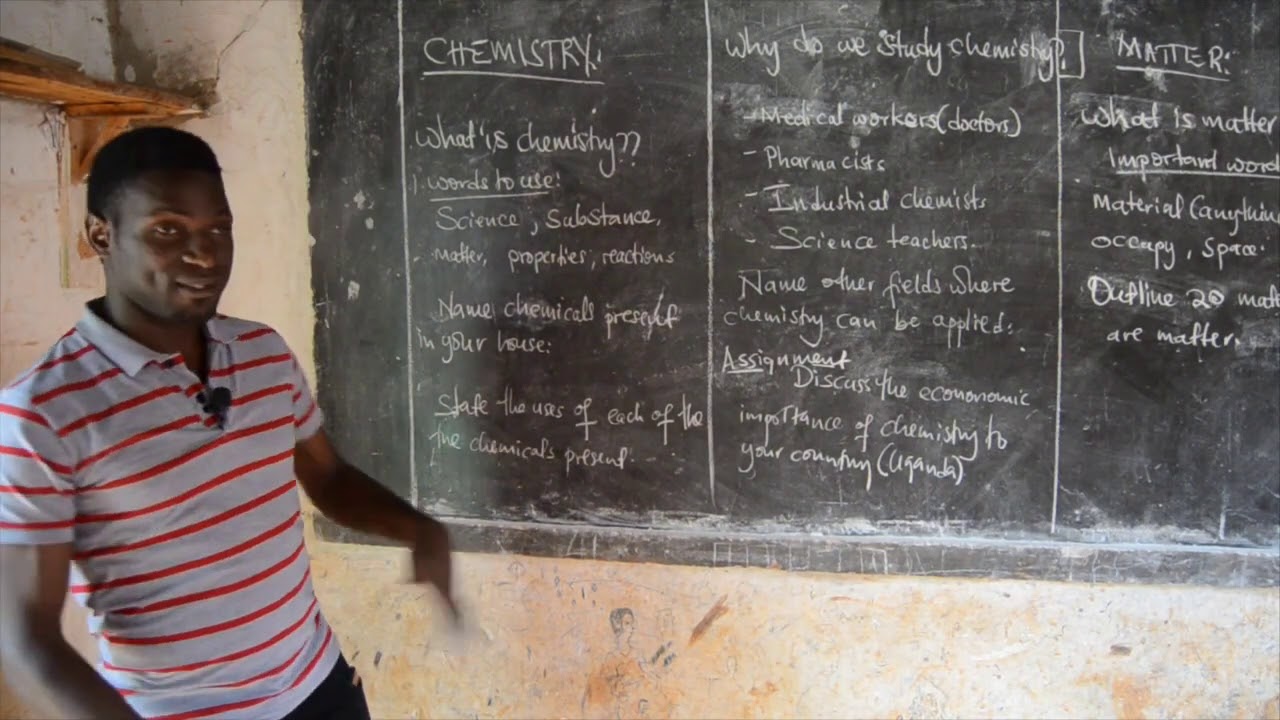 CHEMISTRY:
What is chemistry??
words to use:
Science, Substance,
matter, properties, reactions
Name chemicals present
in your house:
State the uses of each of the
the chemicals present.
Why do we study chemistry?
- Medical workers (doctors)
- Pharmacists
- Industrial chemists
- Science teachers.
Name other fields where
chemistry can be applied:
Assignment
Discuss the econonomic
importance of chemistry to
your country (Uganda)
MATTER:
What is matter
Important word
Material (anythin
occupy, space.
Outline 20 mat
are matter.